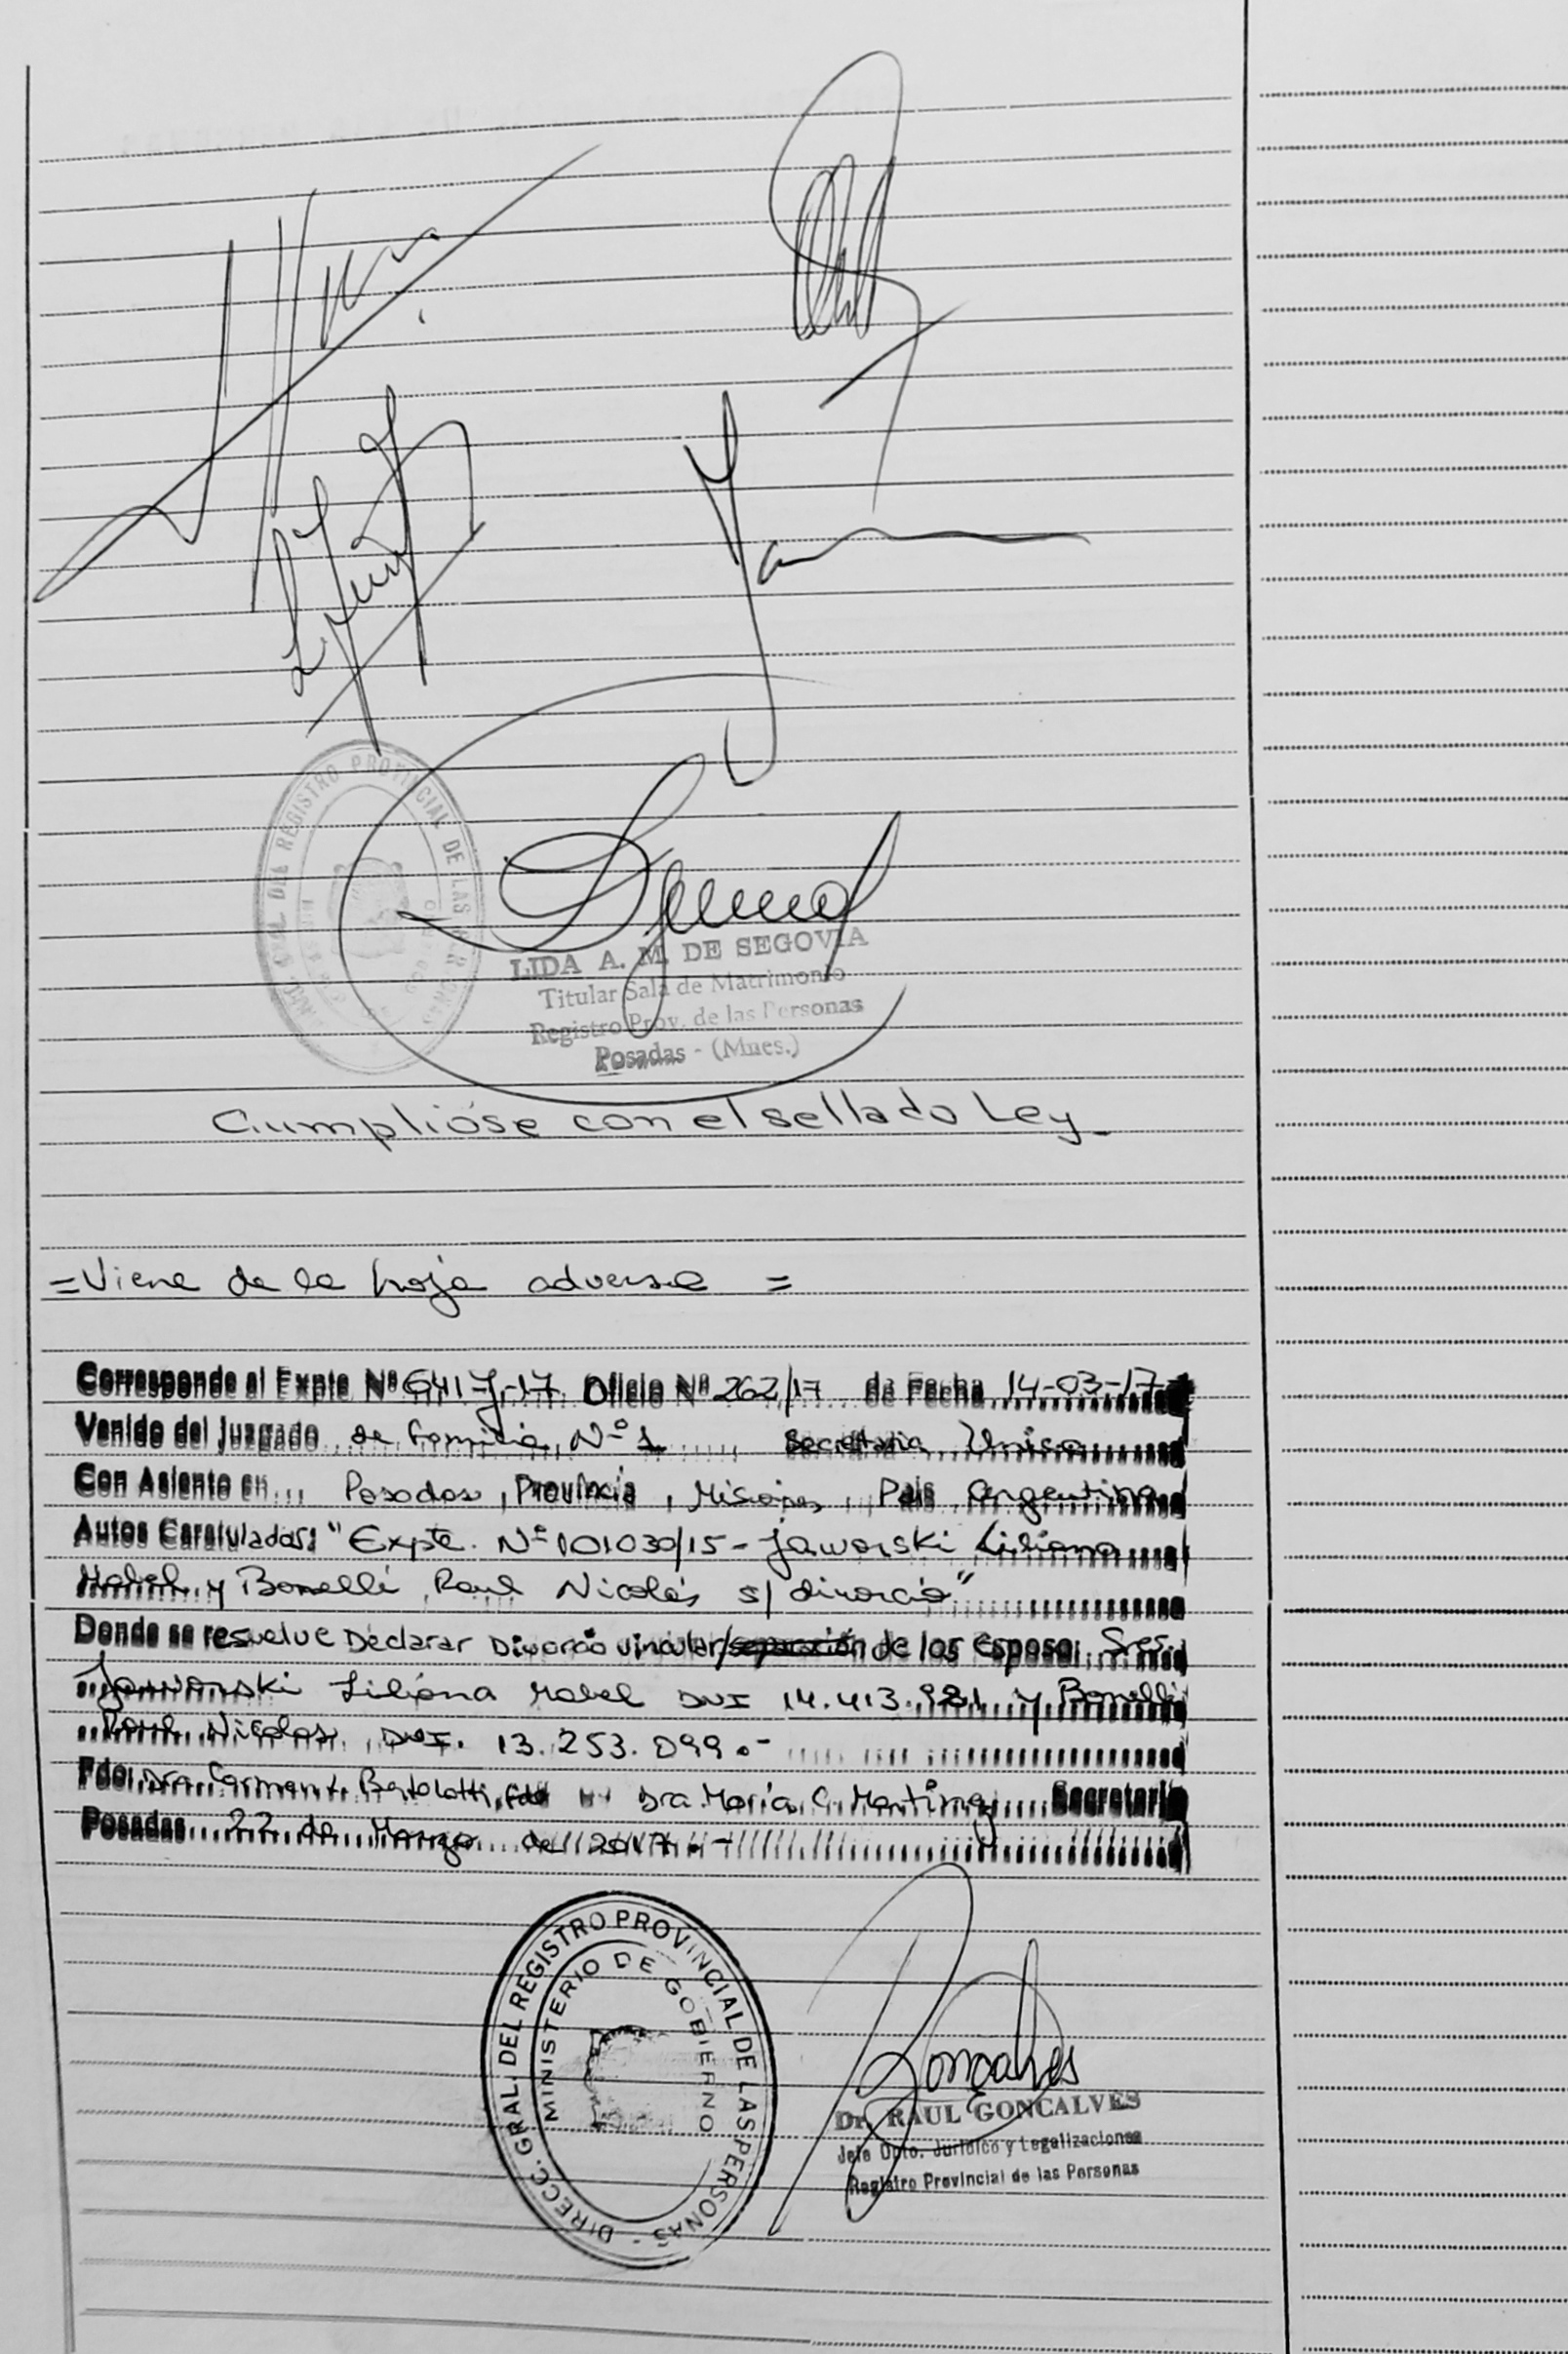 DIRECC. GRAL. DEL REGISTRO PROVINCIAL DE LAS PERSONAS
LIDA A. M. DE SEGOVIA
Titular Sala de Matrimonio
Registro Prov. de las Personas
Posadas - (Mnes.)
Cumplióse con el sellado Ley_
=Viene de la hoja adversa =
Corresponde al Expte Nº 6417-J-17 Oficio Nº 262/17 de Fecha 14-03-17-
Venido del Juzgado de Familia Nº 1 Secretaria Unica
Con Asiento en Posadas, Provincia, Misiones, Pais Argentina
Autos Caratulados: "Expte. Nº 101030/15-Jaworski Liliana
Mabel y Bonelli Raul Nicolás s/ divorcio"
Donde se resuelve Declarar Divorcio Vincular/separación de los Esposos Sres
Jaworski Liliana Mabel DNI 14.413.981 y Bonelli
Raul Nicolas DNI. 13.253.099.-
Fdo. Dra Carmen Bertolotti, Fdo Dra. María C. Martinez Secretaria
Posadas 22 de Marzo de 2017.-
DIRECC. GRAL. DEL REGISTRO PROVINCIAL DE LAS PERSONAS -
MINISTERIO DE GOBIERNO
Goncalves
Dr. RAUL GONCALVES
Jefe Dpto. Juridico y Legalizaciones
Registro Provincial de las Personas